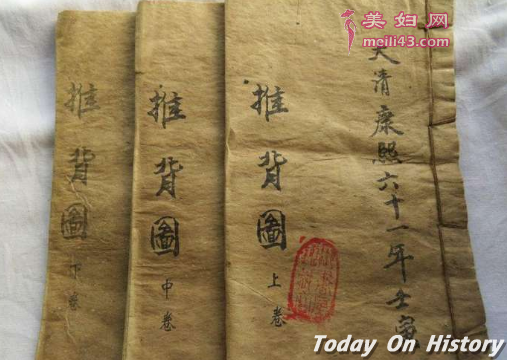 美妇网
meili43.com
大清康熙六十一年壬寅
推背圖
上卷
推背圖
中卷
推背圖
下卷
Today On History